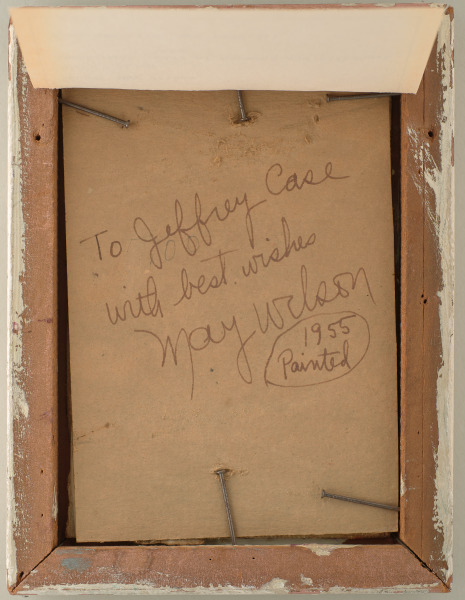 To Jeffrey Case
with best wishes
May Wilson
1955
Painted